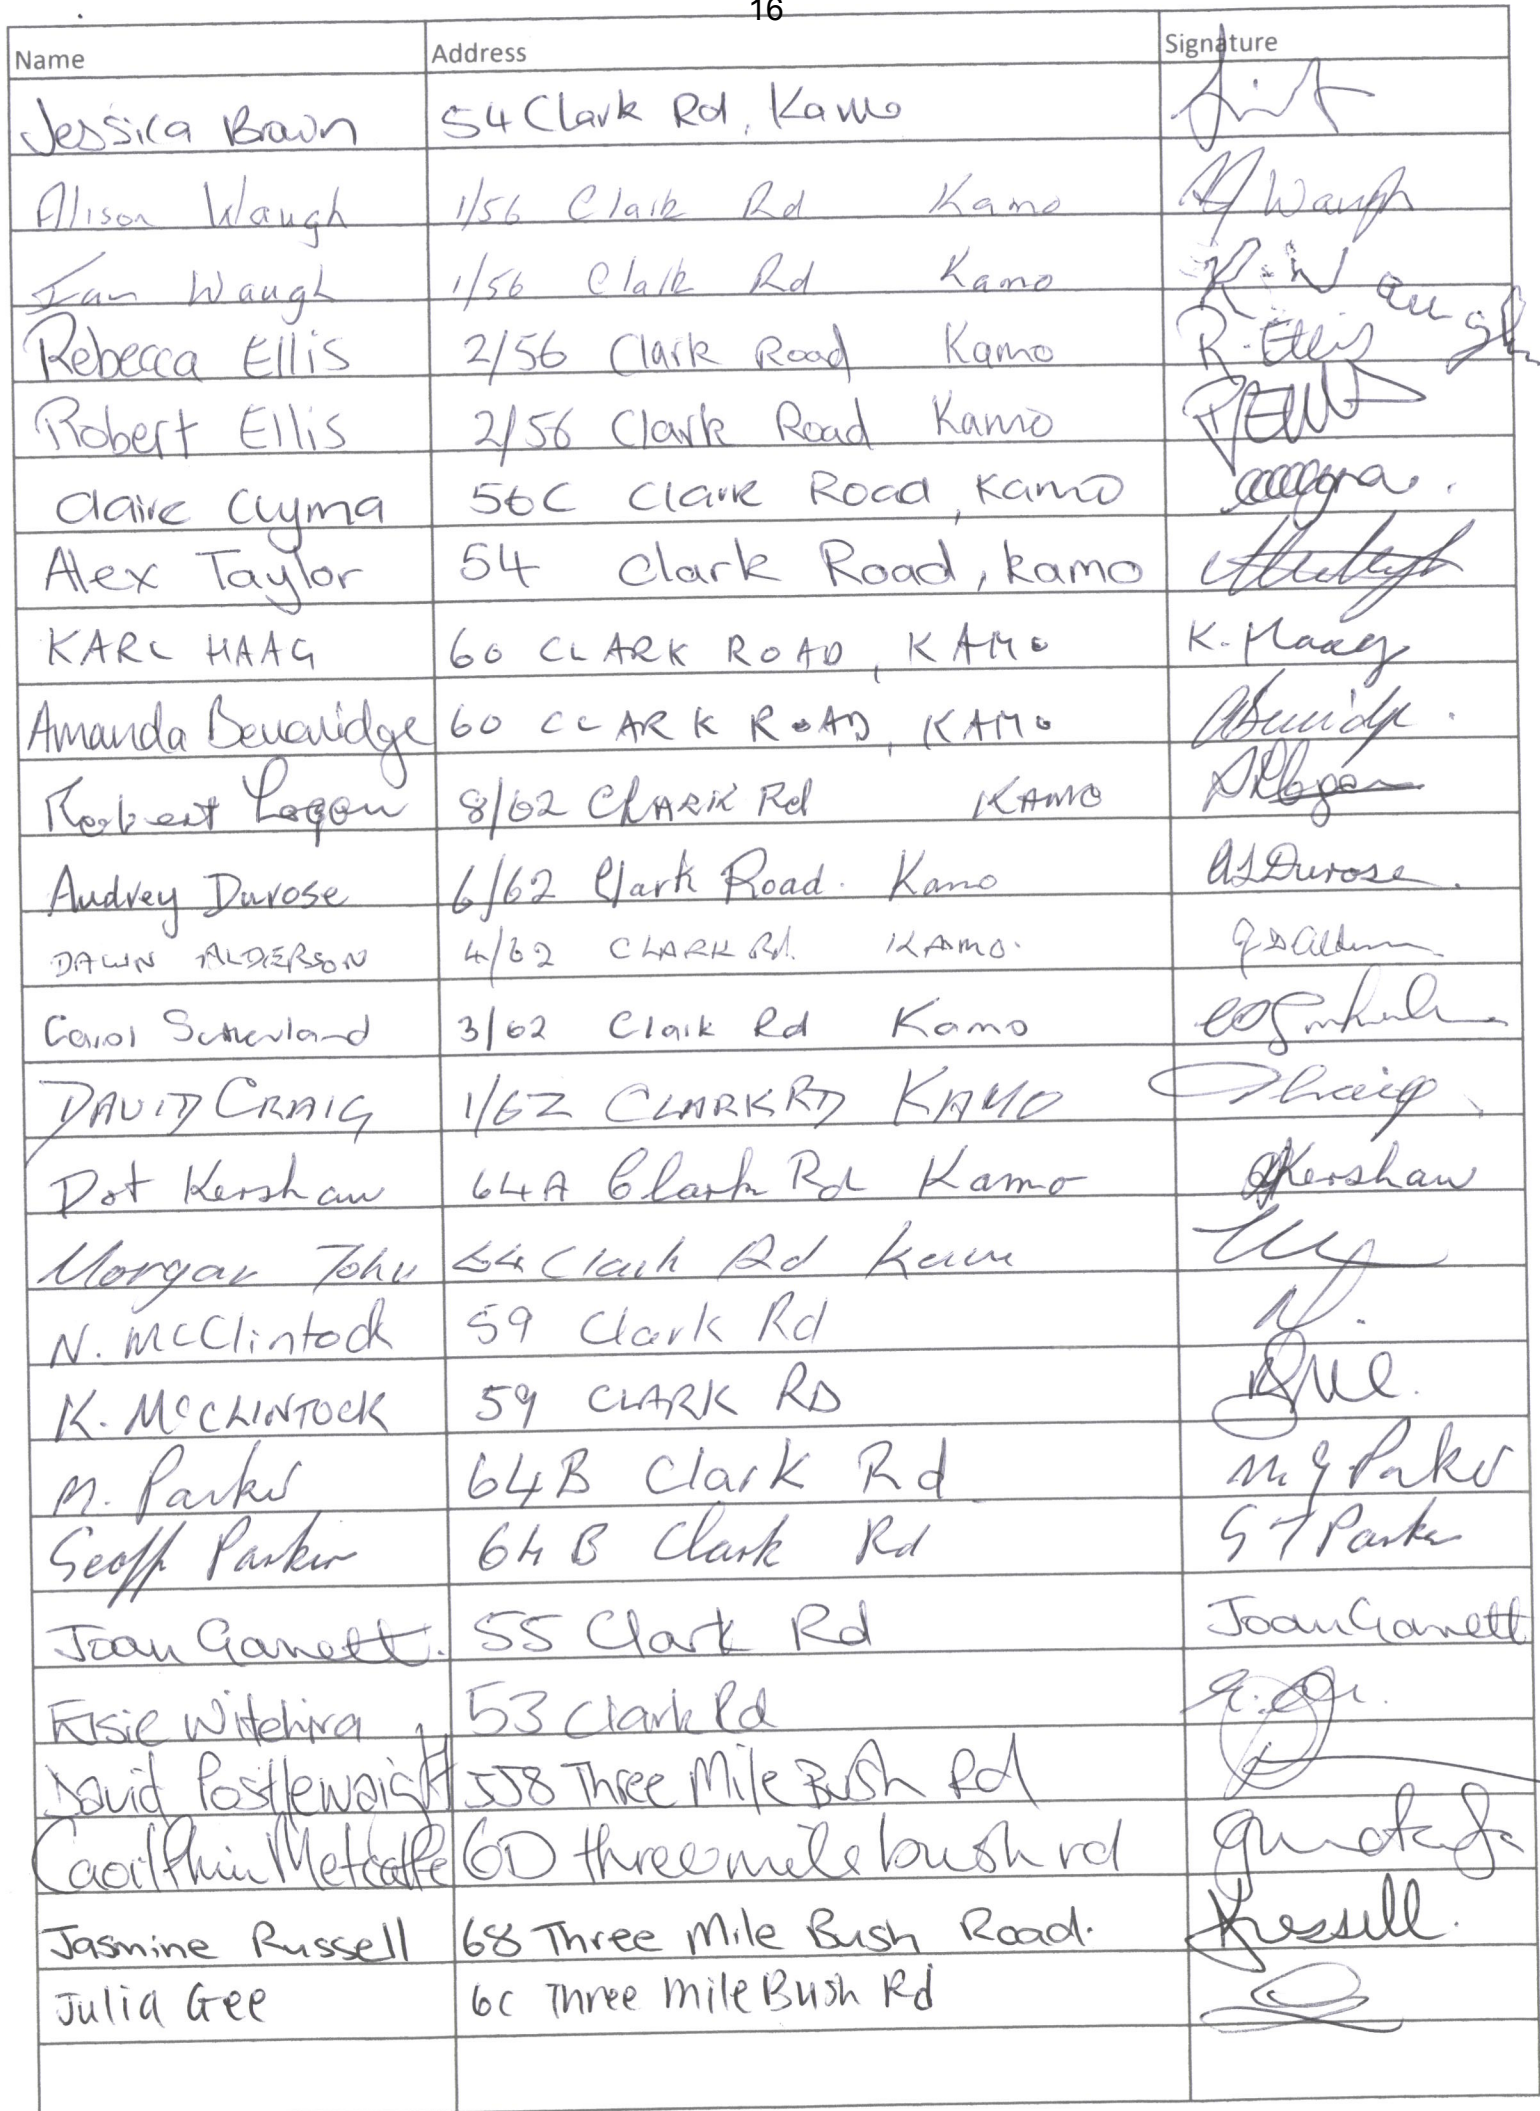 16
Name Address Signature
Jessica Brown 54 Clark Rd, Kamo
Alison Waugh 1/56 Clark Rd Kamo A Waugh
Ian Waugh 1/56 Clark Rd Kamo R. Waugh
Rebecca Ellis 2/56 Clark Road Kamo R. Ellis
Robert Ellis 2/56 Clark Road Kamo
Claire Cuyma 56C Clark Road, Kamo
Alex Taylor 54 Clark Road, Kamo
KARL HAAG 60 CLARK ROAD, KAMO K. Haag
Amanda Bevaridge 60 CLARK ROAD, KAMO
Robert Logan 8/62 CLARK Rd KAMO
Audrey Durose 6/62 Clark Road. Kamo A L Durose.
DAWN ALDERSON 4/62 CLARK Rd. KAMO.
Carol Sutherland 3/62 Clark Rd Kamo
DAVID CRAIG 1/62 CLARK RD KAMO
Dot Kershaw 64A Clark Rd Kamo Kershaw
Morgan John 64 Clark Rd Kamo
N. McClintock 59 Clark Rd
K. McCLINTOCK 59 CLARK RD
M. Parker 64B Clark Rd M. G Parker
Geoff Parker 64B Clark Rd G T Parker
Joan Garrett. 55 Clark Rd Joan Garrett
Elsie Witehira 53 Clark Rd
David Postlewaight 558 Three Mile Bush Rd
Metcalfe 6D three mile bush rd
Jasmine Russell 68 Three Mile Bush Road. Russell.
Julia Gee 6C Three Mile Bush Rd